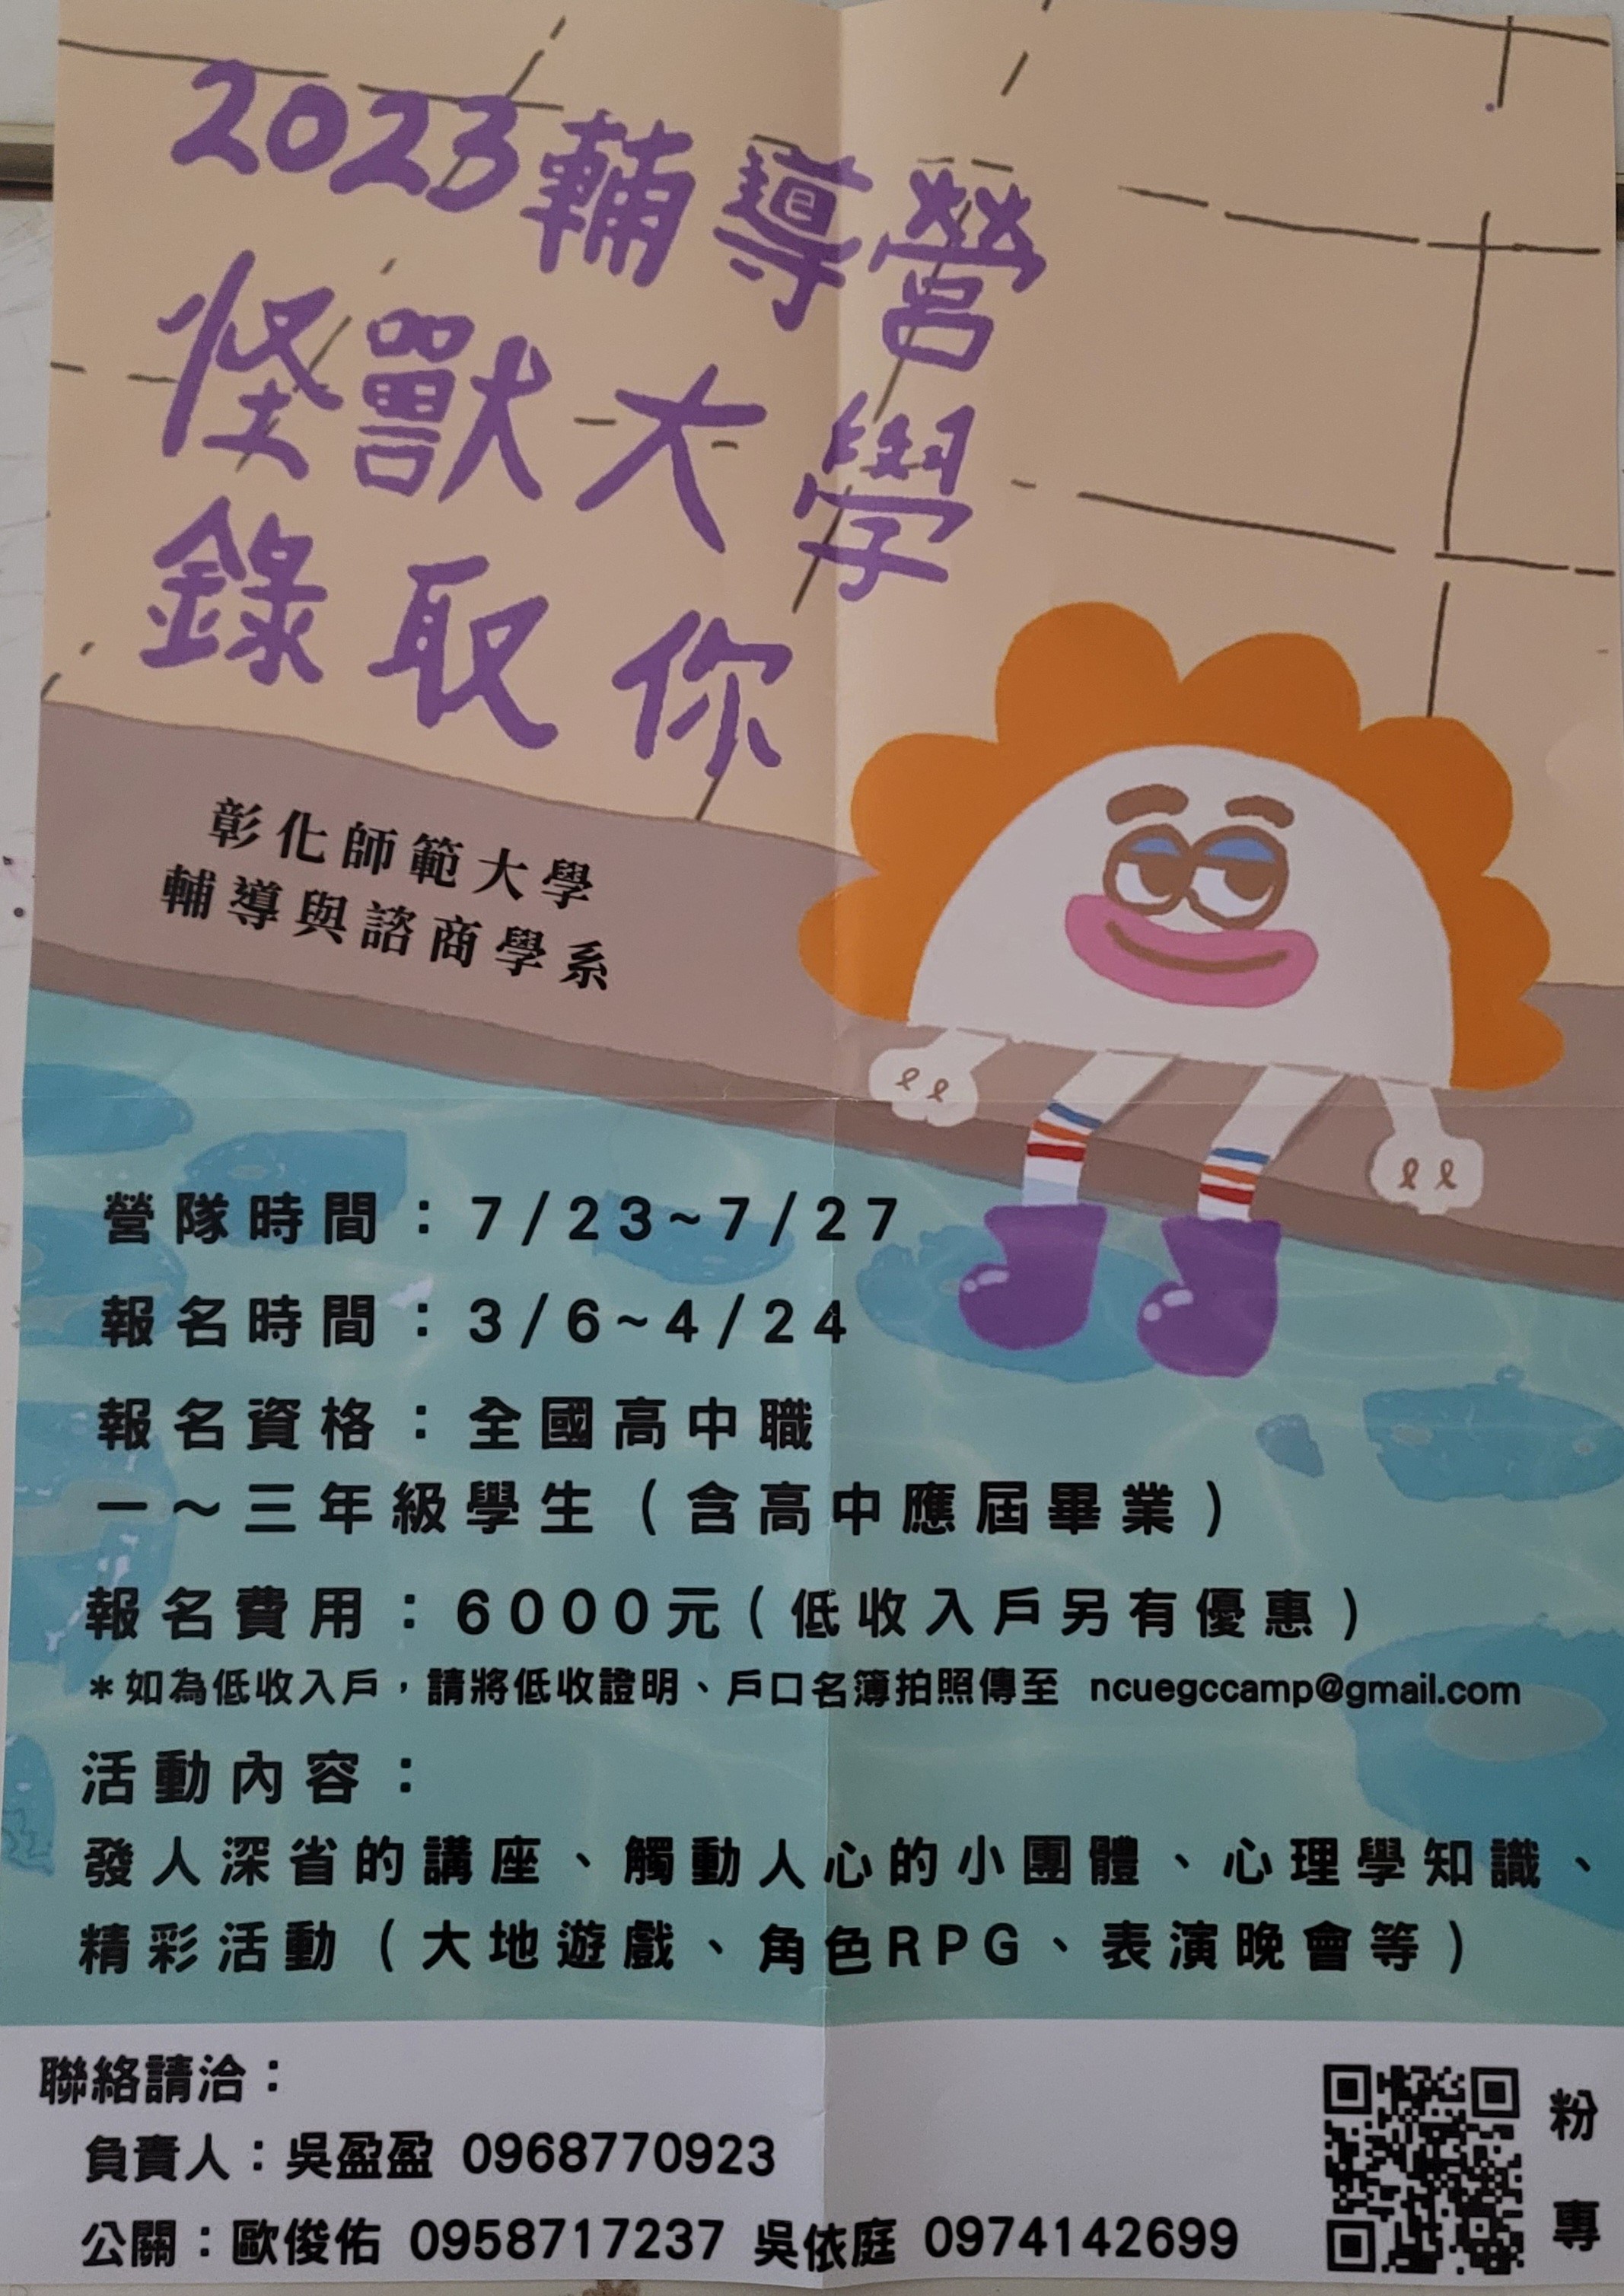 2023輔導營
怪獸大學
錄取你
彰化師範大學
輔導與諮商學系
營隊時間：7/23~7/27
報名時間：3/6~4/24
報名資格：全國高中職
一～三年級學生（含高中應屆畢業）
報名費用：6000元（低收入戶另有優惠）
*如為低收入戶，請將低收證明、戶口名簿拍照傳至 ncuegccamp@gmail.com
活動內容：
發人深省的講座、觸動人心的小團體、心理學知識、
精彩活動（大地遊戲、角色RPG、表演晚會等）
聯絡請洽：
負責人：吳盈盈 0968770923
公關：歐俊佑 0958717237 吳依庭 0974142699
粉專